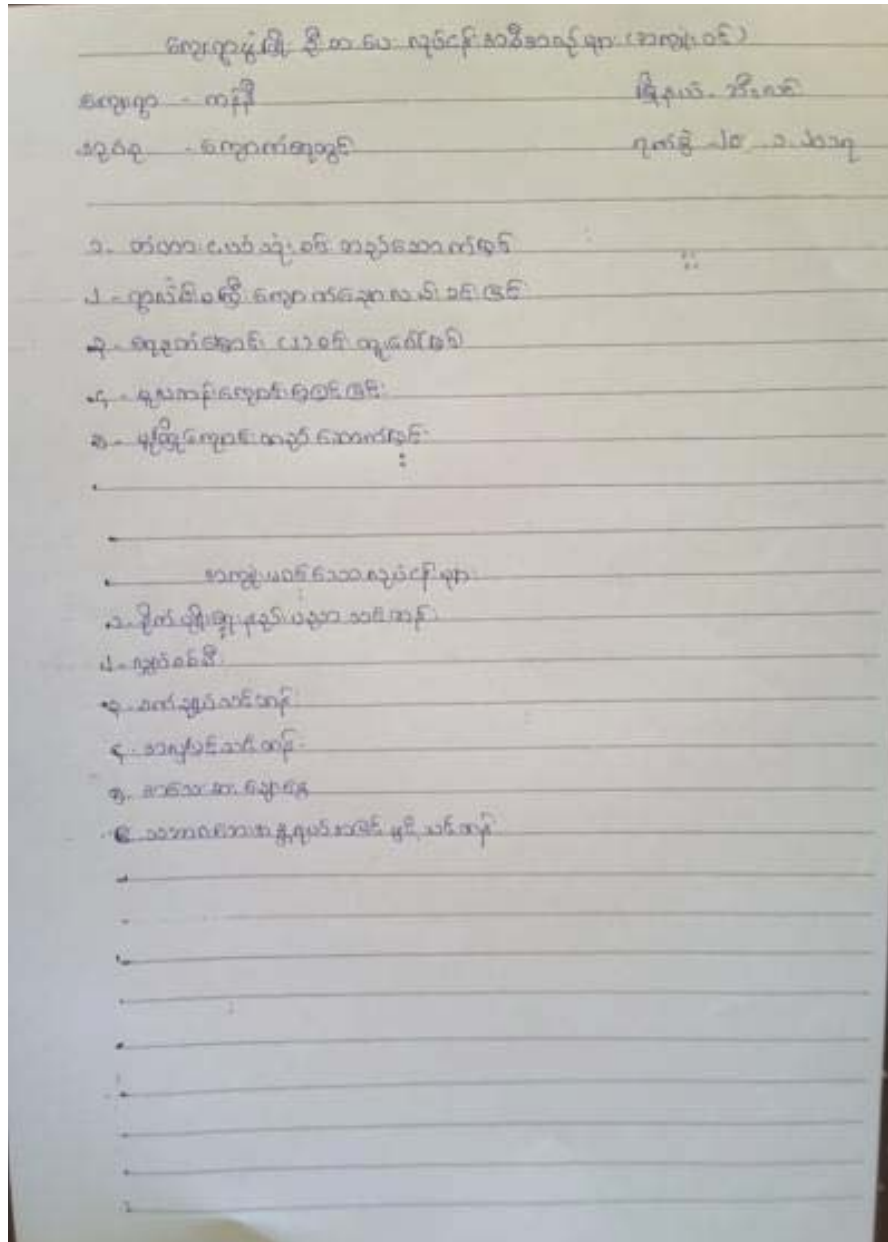 ကျေးရွာဖွံ့ဖြိုး ဦးစားပေး လုပ်ငန်း အစီအစဉ် များ (အကျုံးဝင်)
ကျေးရွာ - ကန်နီ
မြို့နယ် - သီးလင်း
အုပ်စု - ကျောက်ရေတွင်း
ရက်စွဲ ၂၆ . ၁ . ၂၀၁၇
၁. တံတား ၄ ပေ သုံး စင်း တည်ဆောက်ခြင်း
၂ - ရွာလမ်း ကျောက်ချော လမ်း ခင်း ခြင်း
၃ - ရေနုတ်မြောင်း တူးဖော်ခြင်း
၄ - မူလတန်းကျောင်း ပြုပြင်ခြင်း
၅ - မူကြိုကျောင်း တည် ဆောက်ခြင်း
အကျုံးမဝင်သော လုပ်ငန်း များ
၁ - စိုက်ပျိုးမွေးမြူ နည်း ပညာ သင်တန်း
၂ - လျှပ်စစ်မီး
၃ - စက်ချုပ်သင်တန်း
၄ - အလှပြင်သင်တန်း
၅ - အသေးစား ချေးငွေ
၆ - သဘာဝဘေးအန္တရာယ်သင်တန်း